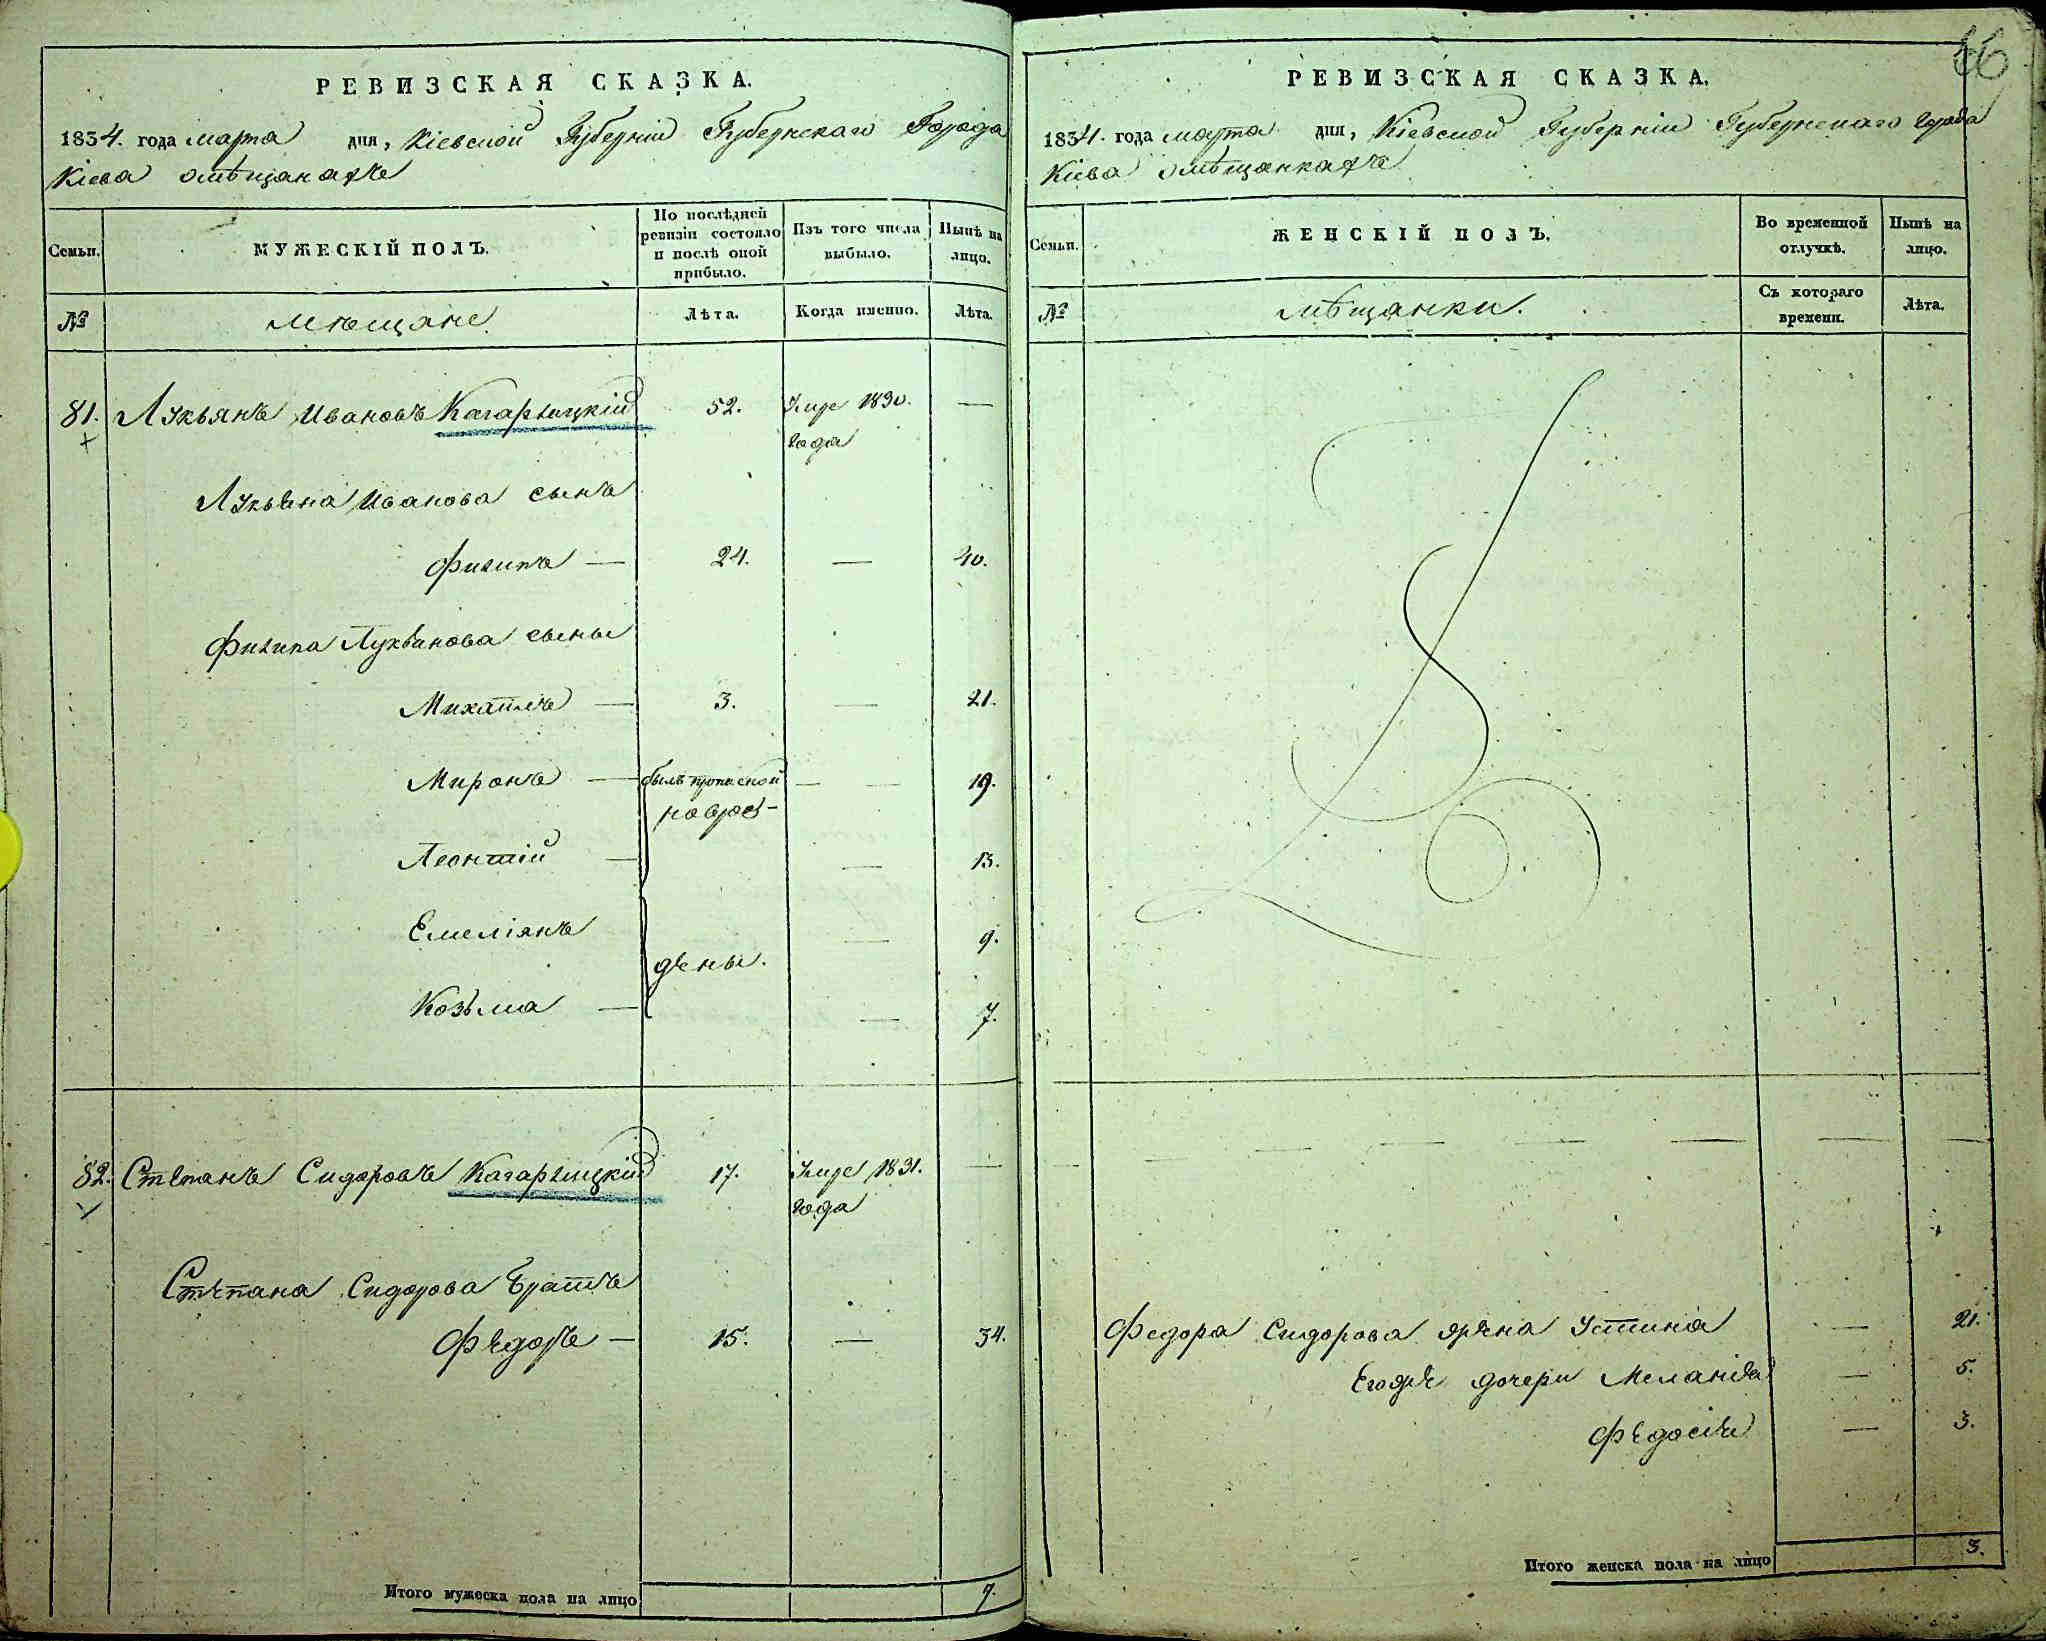 РЕВИЗСКАЯ СКАЗКА.
1834. года марта дня, Кіевской Губерніи Губернскаго Города
Кіева омѣщанахъ
Семьи.
МУЖЕСКІЙ ПОЛЪ.
По послѣдней ревизіи состояло и послѣ оной прибыло.
Изъ того числа выбыло.
Нынѣ на лицо.
№
мѣщане
Лѣта.
Когда именно.
Лѣта.
81. Лукьянъ Ивановъ Кагарлицкій 52. Умре 1830. —
года
Лукьяна Иванова сынъ
Филипъ — 24. — 40.
Филипа Лукьянова сыны
Михаилъ — 3. — 21.
Миронъ — былъ прописной — 19.
новрож-
Леонтій — — 13.
Емеліянъ — 9.
дены.
Козьма — — 7.
82. Степанъ Сидоровъ Кагарлицкій 17. Умре 1831. —
года
Степана Сидорова братъ
Федоръ — 15. — 34.
Итого мужеска пола на лицо 7.
66
РЕВИЗСКАЯ СКАЗКА.
1834. года марта дня, Кіевской Губерніи Губернскаго города
Кіева омѣщанкахъ
Семьи.
ЖЕНСКІЙ ПОЛЪ.
Во временной отлучкѣ.
Нынѣ на лицо.
№
мѣщанки.
Съ котораго времени.
Лѣта.
Федора Сидорова жена Устина — 21.
Егоже дочери Меланія — 5.
Федосія — 3.
Итого женска пола на лицо 3.